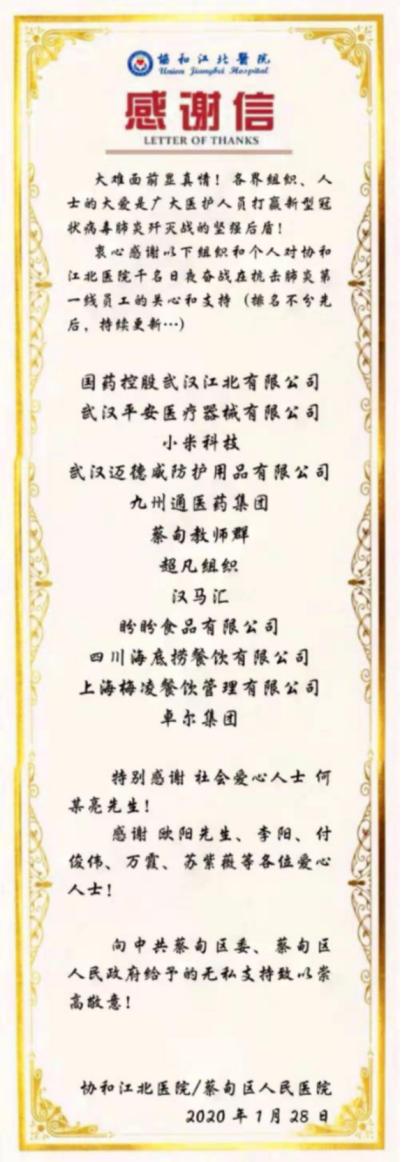 协和江北医院
Union Jiangbei Hospital
感谢信
LETTER OF THANKS
大难面前显真情！各界组织、人
士的大爱是广大医护人员打赢新型冠
状病毒肺炎歼灭战的坚强后盾！
衷心感谢以下组织和个人对协和
江北医院千名日夜奋战在抗击肺炎第
一线员工的关心和支持（排名不分先
后，持续更新…）
国药控股武汉江北有限公司
武汉平安医疗器械有限公司
小米科技
武汉迈德威防护用品有限公司
九州通医药集团
蔡甸教师群
超凡组织
汉马汇
盼盼食品有限公司
四川海底捞餐饮有限公司
上海梅凌餐饮管理有限公司
卓尔集团
特别感谢 社会爱心人士 何
某亮先生！
感谢 欧阳先生、李阳、付
俊伟、万霞、苏紫薇等各位爱心
人士！
向中共蔡甸区委、蔡甸区
人民政府给予的无私支持致以崇
高敬意！
协和江北医院/蔡甸区人民医院
2020 年 1 月 28 日